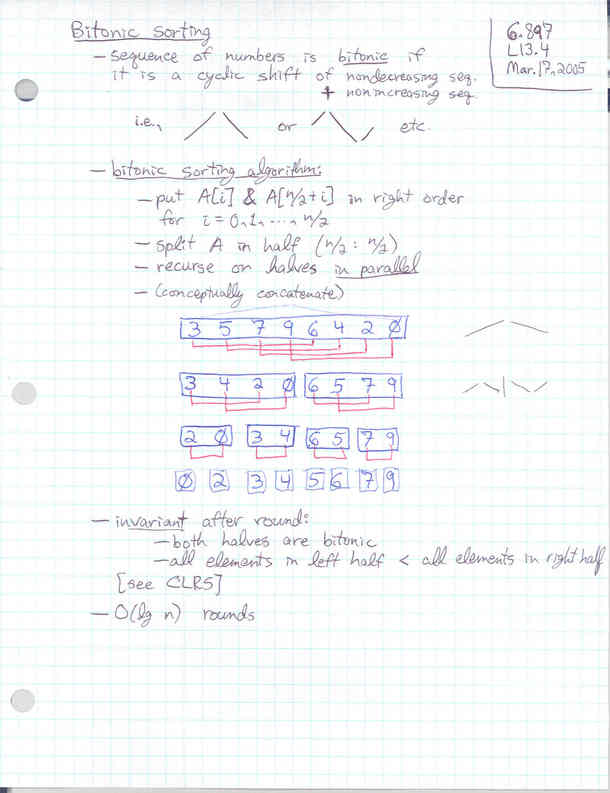 Bitonic Sorting
6.897
L13.4
Mar. 17, 2005
— sequence of numbers is bitonic if
it is a cyclic shift of nondecreasing seq.
+ nonincreasing seq.
i.e., or etc.
— bitonic sorting algorithm:
— put A[i] & A[n/2+i] in right order
for i = 0, 1, ..., n/2
— split A in half (n/2 : n/2)
— recurse on halves in parallel
— (conceptually concatenate)
3 5 7 9 6 4 2 0
3 4 2 0 6 5 7 9
2 0 3 4 6 5 7 9
0 2 3 4 5 6 7 9
— invariant after round:
— both halves are bitonic
— all elements in left half < all elements in right half
[see CLRS]
— O(lg n) rounds